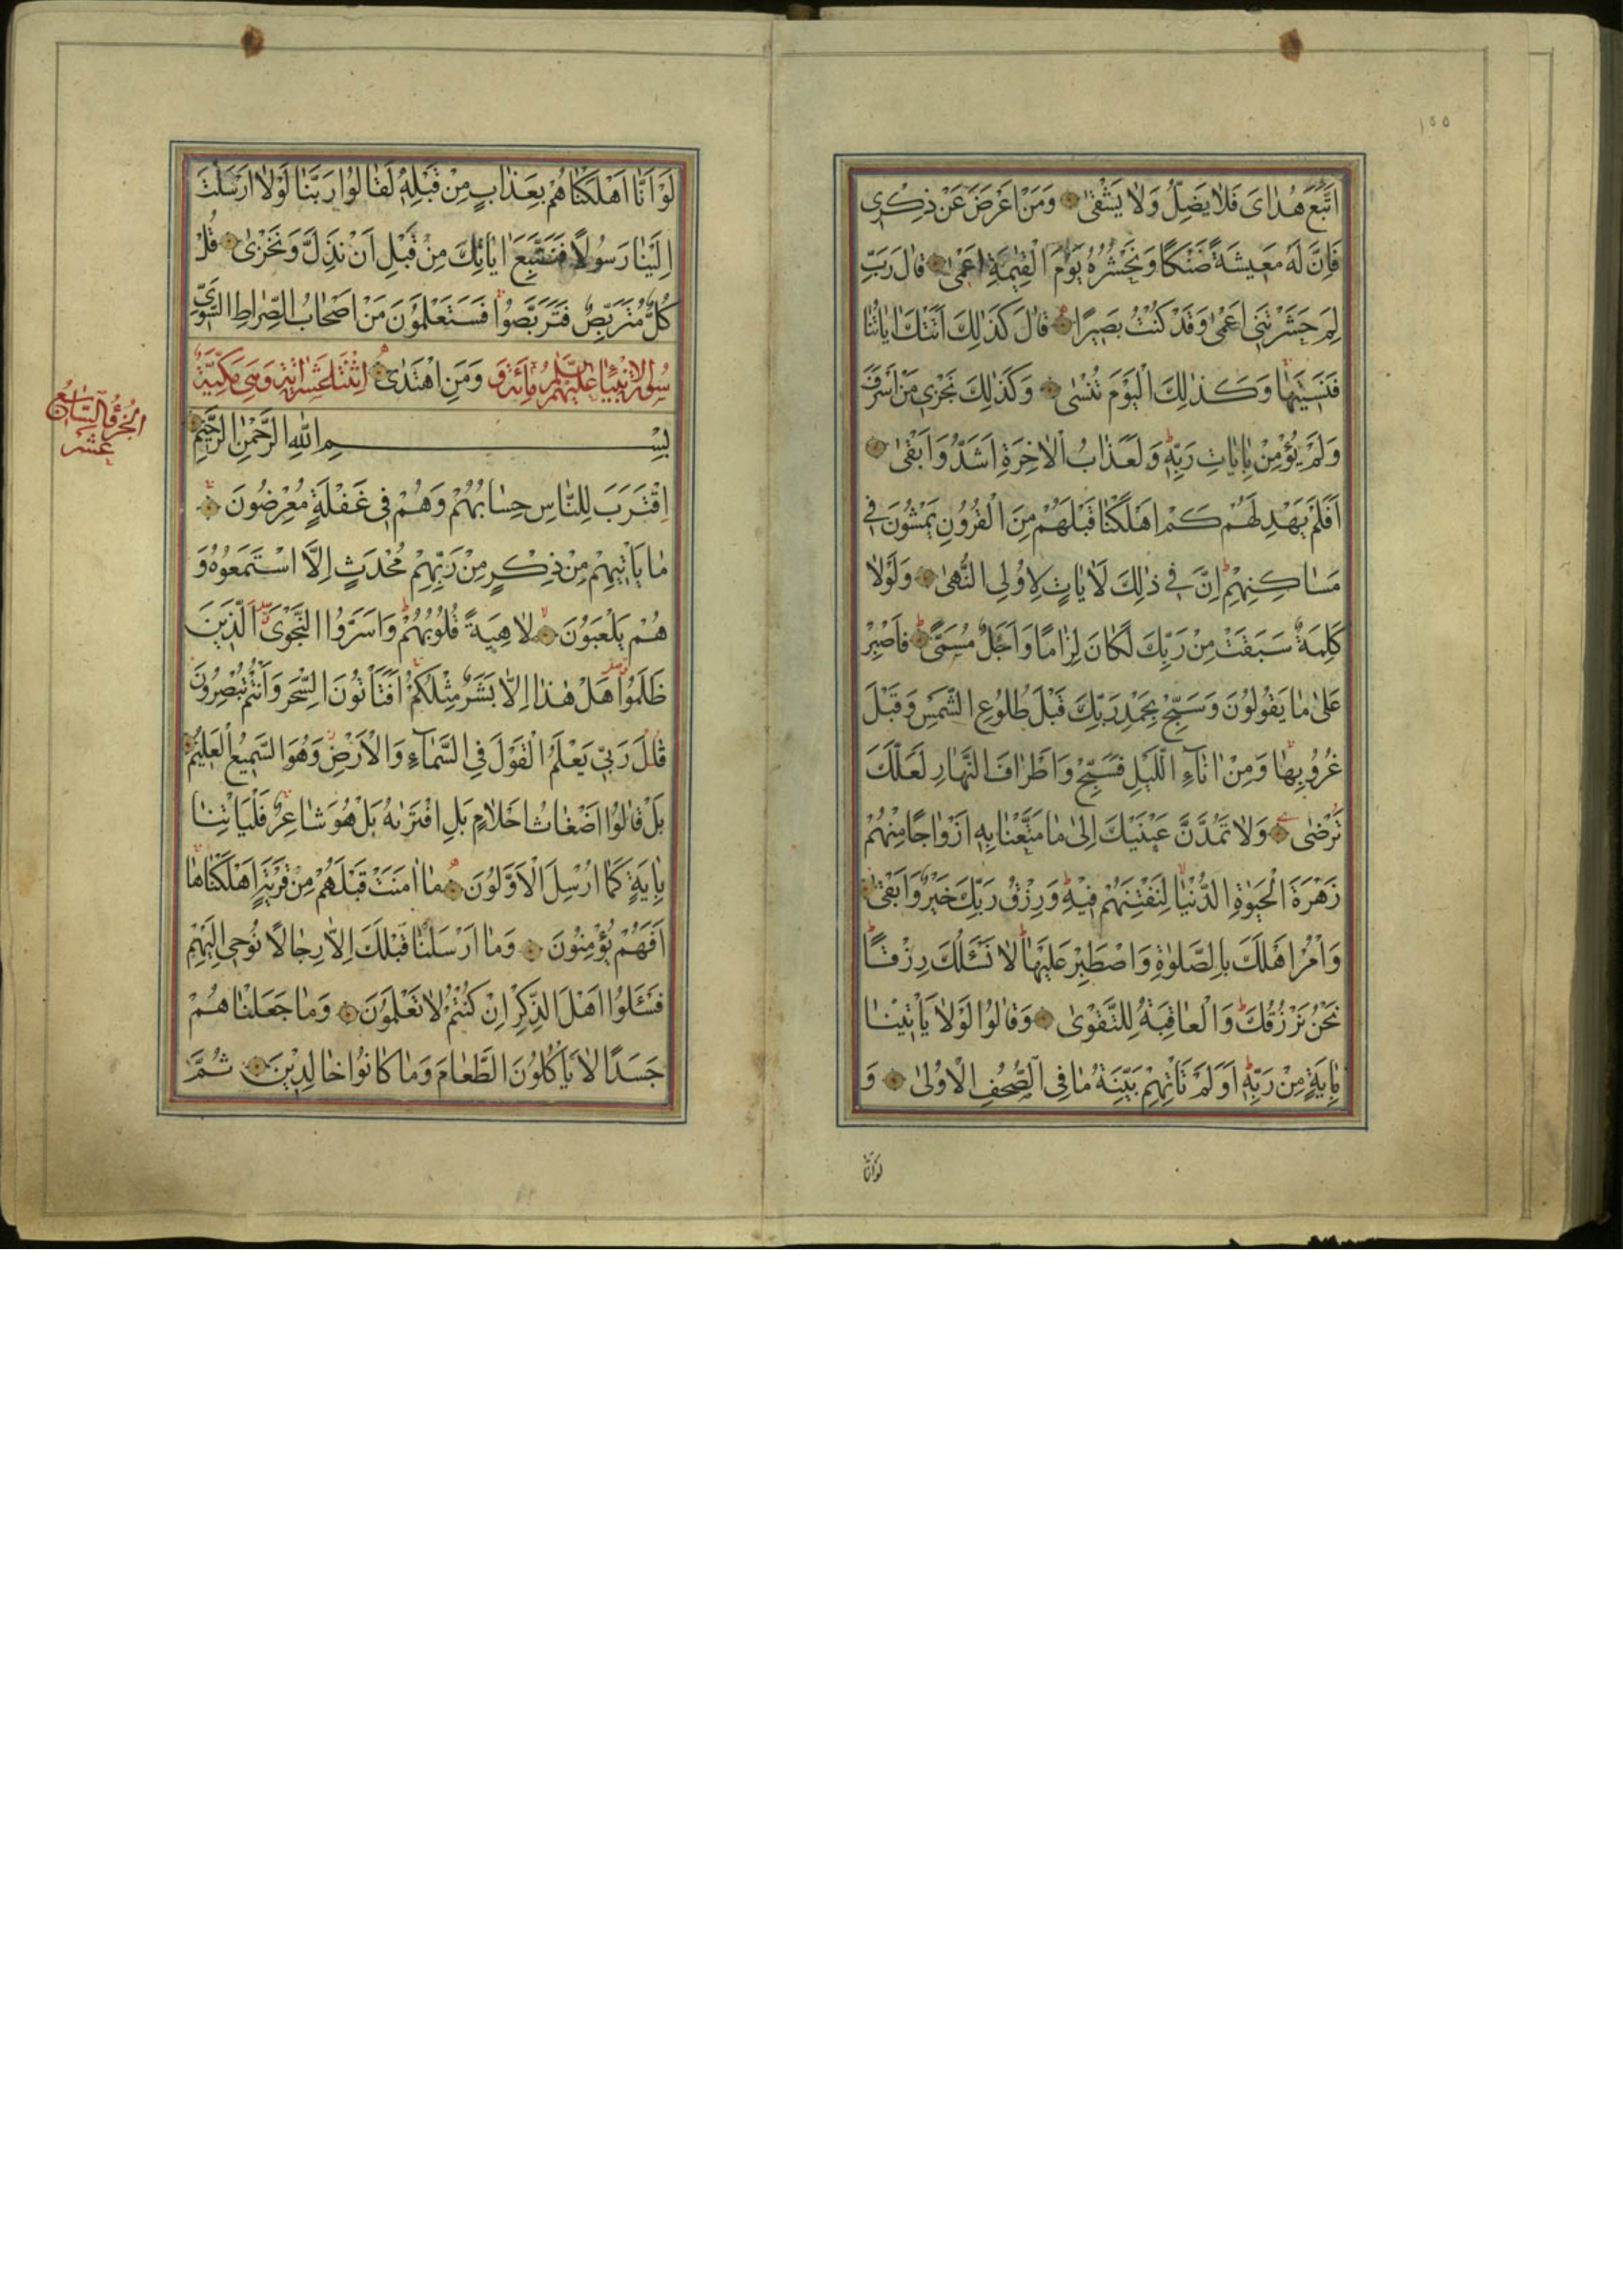 ١٥٥
اتَّبَعَ هُدٰاىَ فَلٰا يَضِلُّ وَلٰا يَشْقىٰ وَمَنْ اَعْرَضَ عَنْ ذِكْرى
فَاِنَّ لَهُ مَعيشَةً ضَنْكًا وَنَحْشُرُهُ يَوْمَ الْقِيٰمَةِ اَعْمىٰ قٰالَ رَبِّ
لِمَ حَشَرْتَنى اَعْمىٰ وَقَدْ كُنْتُ بَصيرًا قٰالَ كَذٰلِكَ اَتَتْكَ اٰيٰاتُنٰا
فَنَسيتَهٰا وَكَذٰلِكَ الْيَوْمَ تُنْسىٰ وَكَذٰلِكَ نَجْزى مَنْ اَسْرَفَ
وَلَمْ يُؤْمِنْ بِاٰيٰاتِ رَبِّه وَلَعَذٰابُ الْاٰخِرَةِ اَشَدُّ وَاَبْقىٰ
اَفَلَمْ يَهْدِ لَهُمْ كَمْ اَهْلَكْنٰا قَبْلَهُمْ مِنَ الْقُرُونِ يَمْشُونَ فى
مَسٰاكِنِهِمْ اِنَّ فى ذٰلِكَ لَاٰيٰاتٍ لِاُولِى النُّهىٰ وَلَوْلٰا
كَلِمَةٌ سَبَقَتْ مِنْ رَبِّكَ لَكٰانَ لِزٰامًا وَاَجَلٌ مُسَمًّى فَاصْبِرْ
عَلىٰ مٰا يَقُولُونَ وَسَبِّحْ بِحَمْدِ رَبِّكَ قَبْلَ طُلُوعِ الشَّمْسِ وَقَبْلَ
غُرُوبِهٰا وَمِنْ اٰنٰآءِ اللَّيْلِ فَسَبِّحْ وَاَطْرٰافَ النَّهٰارِ لَعَلَّكَ
تَرْضىٰ وَلٰا تَمُدَّنَّ عَيْنَيْكَ اِلىٰ مٰا مَتَّعْنٰا بِه اَزْوٰاجًا مِنْهُمْ
زَهْرَةَ الْحَيٰوةِ الدُّنْيٰا لِنَفْتِنَهُمْ فيهِ وَرِزْقُ رَبِّكَ خَيْرٌ وَاَبْقىٰ
وَاْمُرْ اَهْلَكَ بِالصَّلٰوةِ وَاصْطَبِرْ عَلَيْهٰا لٰا نَسْئَلُكَ رِزْقًا
نَحْنُ نَرْزُقُكَ وَالْعٰاقِبَةُ لِلتَّقْوىٰ وَقٰالُوا لَوْلٰا يَاْتينٰا
بِاٰيَةٍ مِنْ رَبِّه اَوَلَمْ تَاْتِهِمْ بَيِّنَةُ مٰا فِى الصُّحُفِ الْاُولىٰ وَ
لَوْ اَنّٰا
لَوْ اَنّٰا اَهْلَكْنٰاهُمْ بِعَذٰابٍ مِنْ قَبْلِه لَقٰالُوا رَبَّنٰا لَوْلٰا اَرْسَلْتَ
اِلَيْنٰا رَسُولًا فَنَتَّبِعَ اٰيٰاتِكَ مِنْ قَبْلِ اَنْ نَذِلَّ وَنَخْزىٰ قُلْ
كُلٌّ مُتَرَبِّصٌ فَتَرَبَّصُوا فَسَتَعْلَمُونَ مَنْ اَصْحٰابُ الصِّرٰاطِ السَّوِىِّ
سورة الانبياء عليهم السلام مائة و وَمَنِ اهْتَدىٰ اثنتا عشر اية وهى مكية
الجزء السابع
عشر
بِسْمِ اللّٰهِ الرَّحْمٰنِ الرَّحيمِ
اِقْتَرَبَ لِلنّٰاسِ حِسٰابُهُمْ وَهُمْ فى غَفْلَةٍ مُعْرِضُونَ
مٰا يَاْتيهِمْ مِنْ ذِكْرٍ مِنْ رَبِّهِمْ مُحْدَثٍ اِلَّا اسْتَمَعُوهُ وَ
هُمْ يَلْعَبُونَ لٰاهِيَةً قُلُوبُهُمْ وَاَسَرُّوا النَّجْوَى الَّذينَ
ظَلَمُوا هَلْ هٰذٰا اِلّٰا بَشَرٌ مِثْلُكُمْ اَفَتَاْتُونَ السِّحْرَ وَاَنْتُمْ تُبْصِرُونَ
قٰالَ رَبّى يَعْلَمُ الْقَوْلَ فِى السَّمٰآءِ وَالْاَرْضِ وَهُوَ السَّميعُ الْعَليمُ
بَلْ قٰالُوا اَضْغٰاثُ اَحْلٰامٍ بَلِ افْتَرٰيهُ بَلْ هُوَ شٰاعِرٌ فَلْيَاْتِنٰا
بِاٰيَةٍ كَمٰا اُرْسِلَ الْاَوَّلُونَ مٰا اٰمَنَتْ قَبْلَهُمْ مِنْ قَرْيَةٍ اَهْلَكْنٰاهٰا
اَفَهُمْ يُؤْمِنُونَ وَمٰا اَرْسَلْنٰا قَبْلَكَ اِلّٰا رِجٰالًا نُوحى اِلَيْهِمْ
فَسْئَلُوا اَهْلَ الذِّكْرِ اِنْ كُنْتُمْ لٰا تَعْلَمُونَ وَمٰا جَعَلْنٰاهُمْ
جَسَدًا لٰا يَاْكُلُونَ الطَّعٰامَ وَمٰا كٰانُوا خٰالِدينَ ثُمَّ